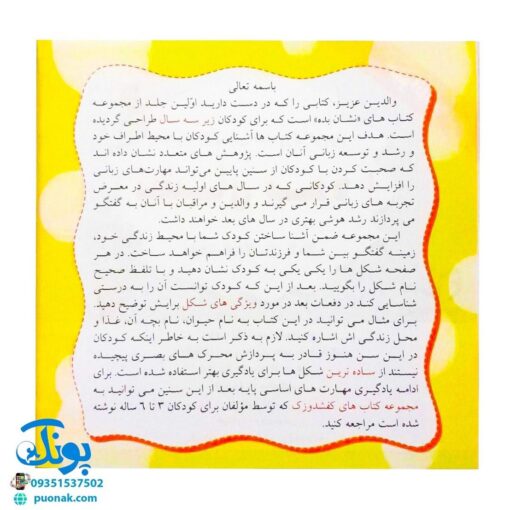 باسمه تعالی
والدین عزیز، کتابی را که در دست دارید اولین جلد از مجموعه
کتاب های «نشان بده» است که برای کودکان زیر سه سال طراحی گردیده
است. هدف این مجموعه کتاب ها آشنایی کودکان با محیط اطراف خود
و رشد و توسعه زبانی آنان است. پژوهش های متعدد نشان داده اند
که صحبت کردن با کودکان از سنین پایین می‌تواند مهارت‌های زبانی
را افزایش دهد. کودکانی که در سال های اولیه زندگی در معرض
تجربه های زبانی قرار می گیرند و والدین و مراقبان با آنان به گفتگو
می پردازند رشد هوشی بهتری در سال های بعد خواهند داشت.
این مجموعه ضمن آشنا ساختن کودک شما با محیط زندگی خود،
زمینه گفتگو بین شما و فرزندتان را فراهم خواهد ساخت. در هر
صفحه شکل ها را یکی یکی به کودک نشان دهید و با تلفظ صحیح
نام شکل را بگویید. بعد از این که کودک توانست آن را به درستی
شناسایی کند در دفعات بعد در مورد ویژگی های شکل برایش توضیح دهید.
برای مثال می توانید در این کتاب به نام حیوان، نام بچه آن، غذا و
محل زندگی اش اشاره کنید. لازم به ذکر است به خاطر اینکه کودکان
در این سن هنوز قادر به پردازش محرک های بصری پیچیده
نیستند از ساده ترین شکل ها برای یادگیری بهتر استفاده شده است. برای
ادامه یادگیری مهارت های اساسی پایه بعد از این سنین می توانید به
مجموعه کتاب های کفشدوزک که توسط مؤلفان برای کودکان ۳ تا ۶ ساله نوشته
شده است مراجعه کنید.
پونک
09351537502
puonak.com